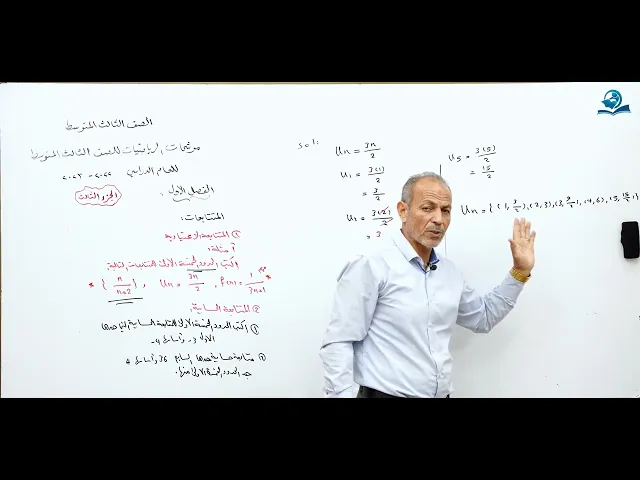 الصف الثالث المتوسط
مرشحات الرياضيات للصف الثالث المتوسط
للعام الدراسي ٢٠٢٢-٢٠٢٣
الفصل الاول: الجزء الثالث
المتتابعات:
① المتتابعة الاعتيادية
أمثلة:
اكتب الحدود الخمسة الاولى للمتتابعات التالية
* { n/n+2 } , Un = 3n/2 , f(n) = 1/3n+1 *
② المتتابعة الحسابية:
① اكتب الحدود الخمسة الاولى للمتتابعة الحسابية التي حدها
الاول 3- وأساسها 4-
② متتابعة حسابية حدها السابع 36 وأساسها 4
جد الحدود الخمسة الاولى منها.
sol:
Un = 3n/2
U1 = 3(1)/2
= 3/2
U2 = 3(2)/2
= 3
U5 = 3(5)/2
= 15/2
Un = { (1, 3/2), (2, 3), (3, 9/2), (4, 6), (5, 15/2) }